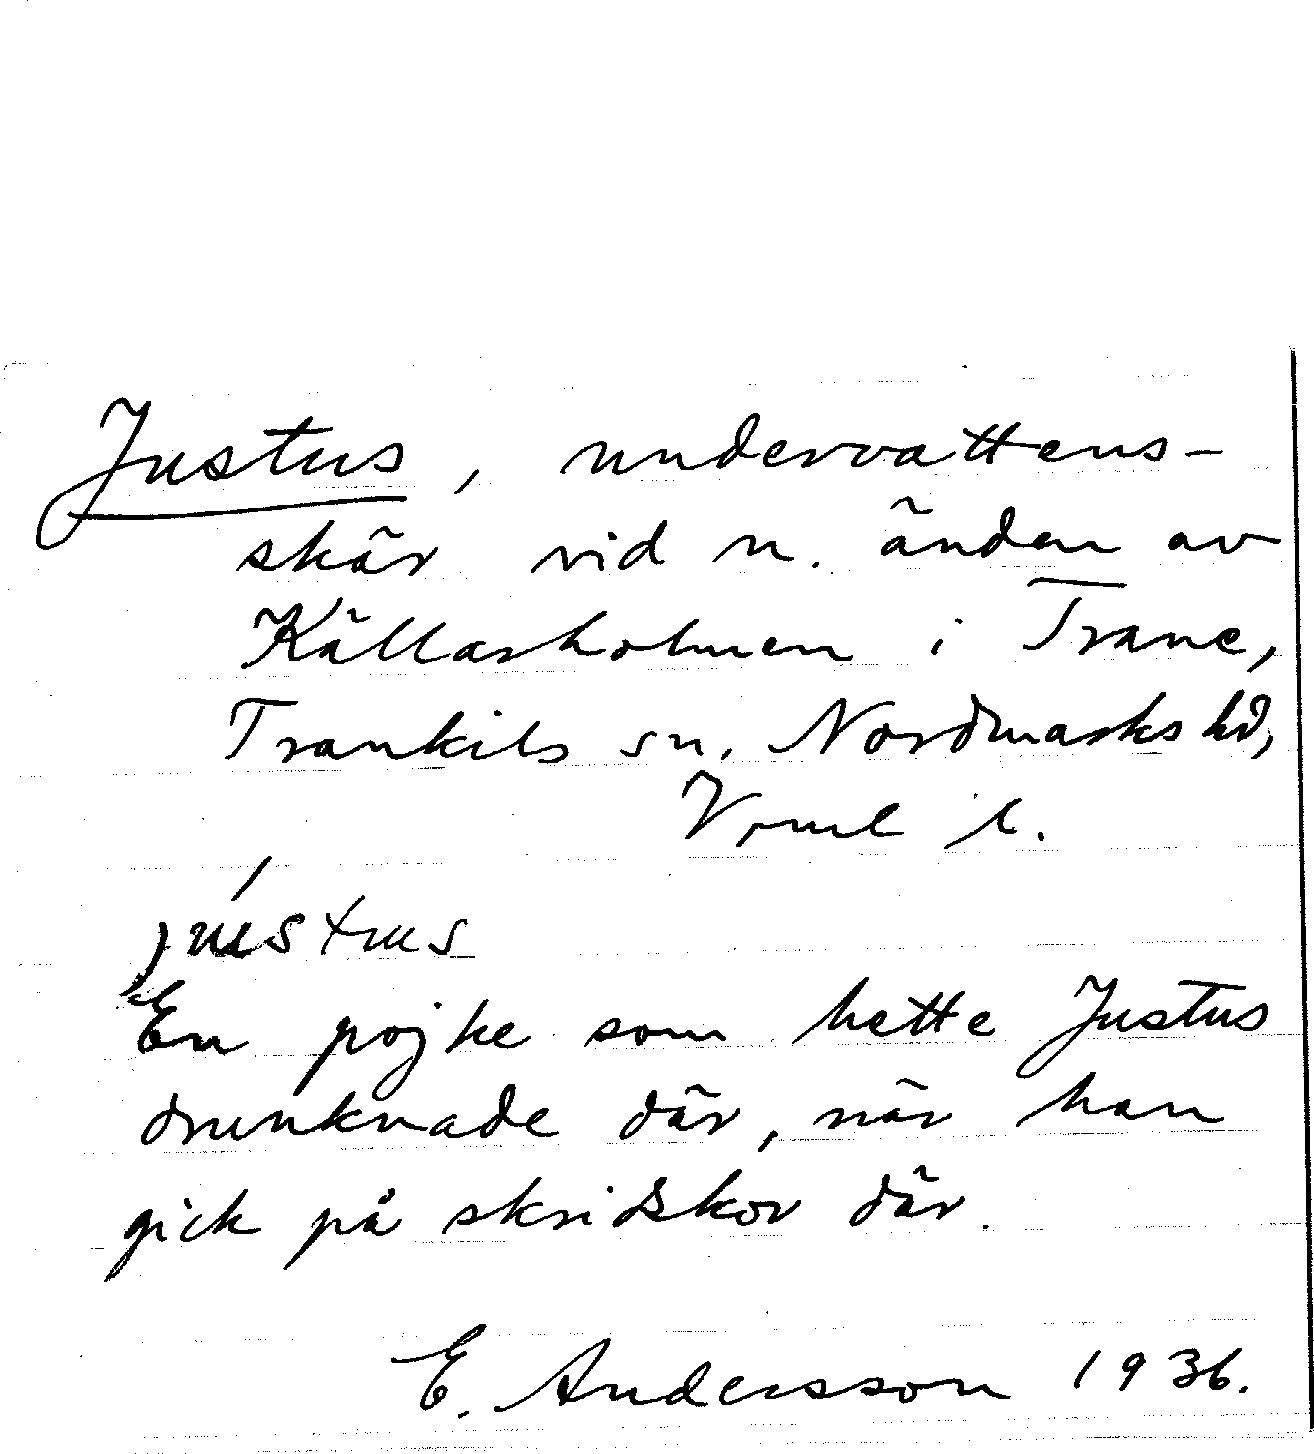 Justus, undervattens-
skär vid n. änden av
Källarholmen i Trane,
Trankils sn. Nordmarks hd,
Vrml l.
justus
En pojke som hette Justus
drunknade där, när han
gick på skridskor där.
E. Andersson 1936.